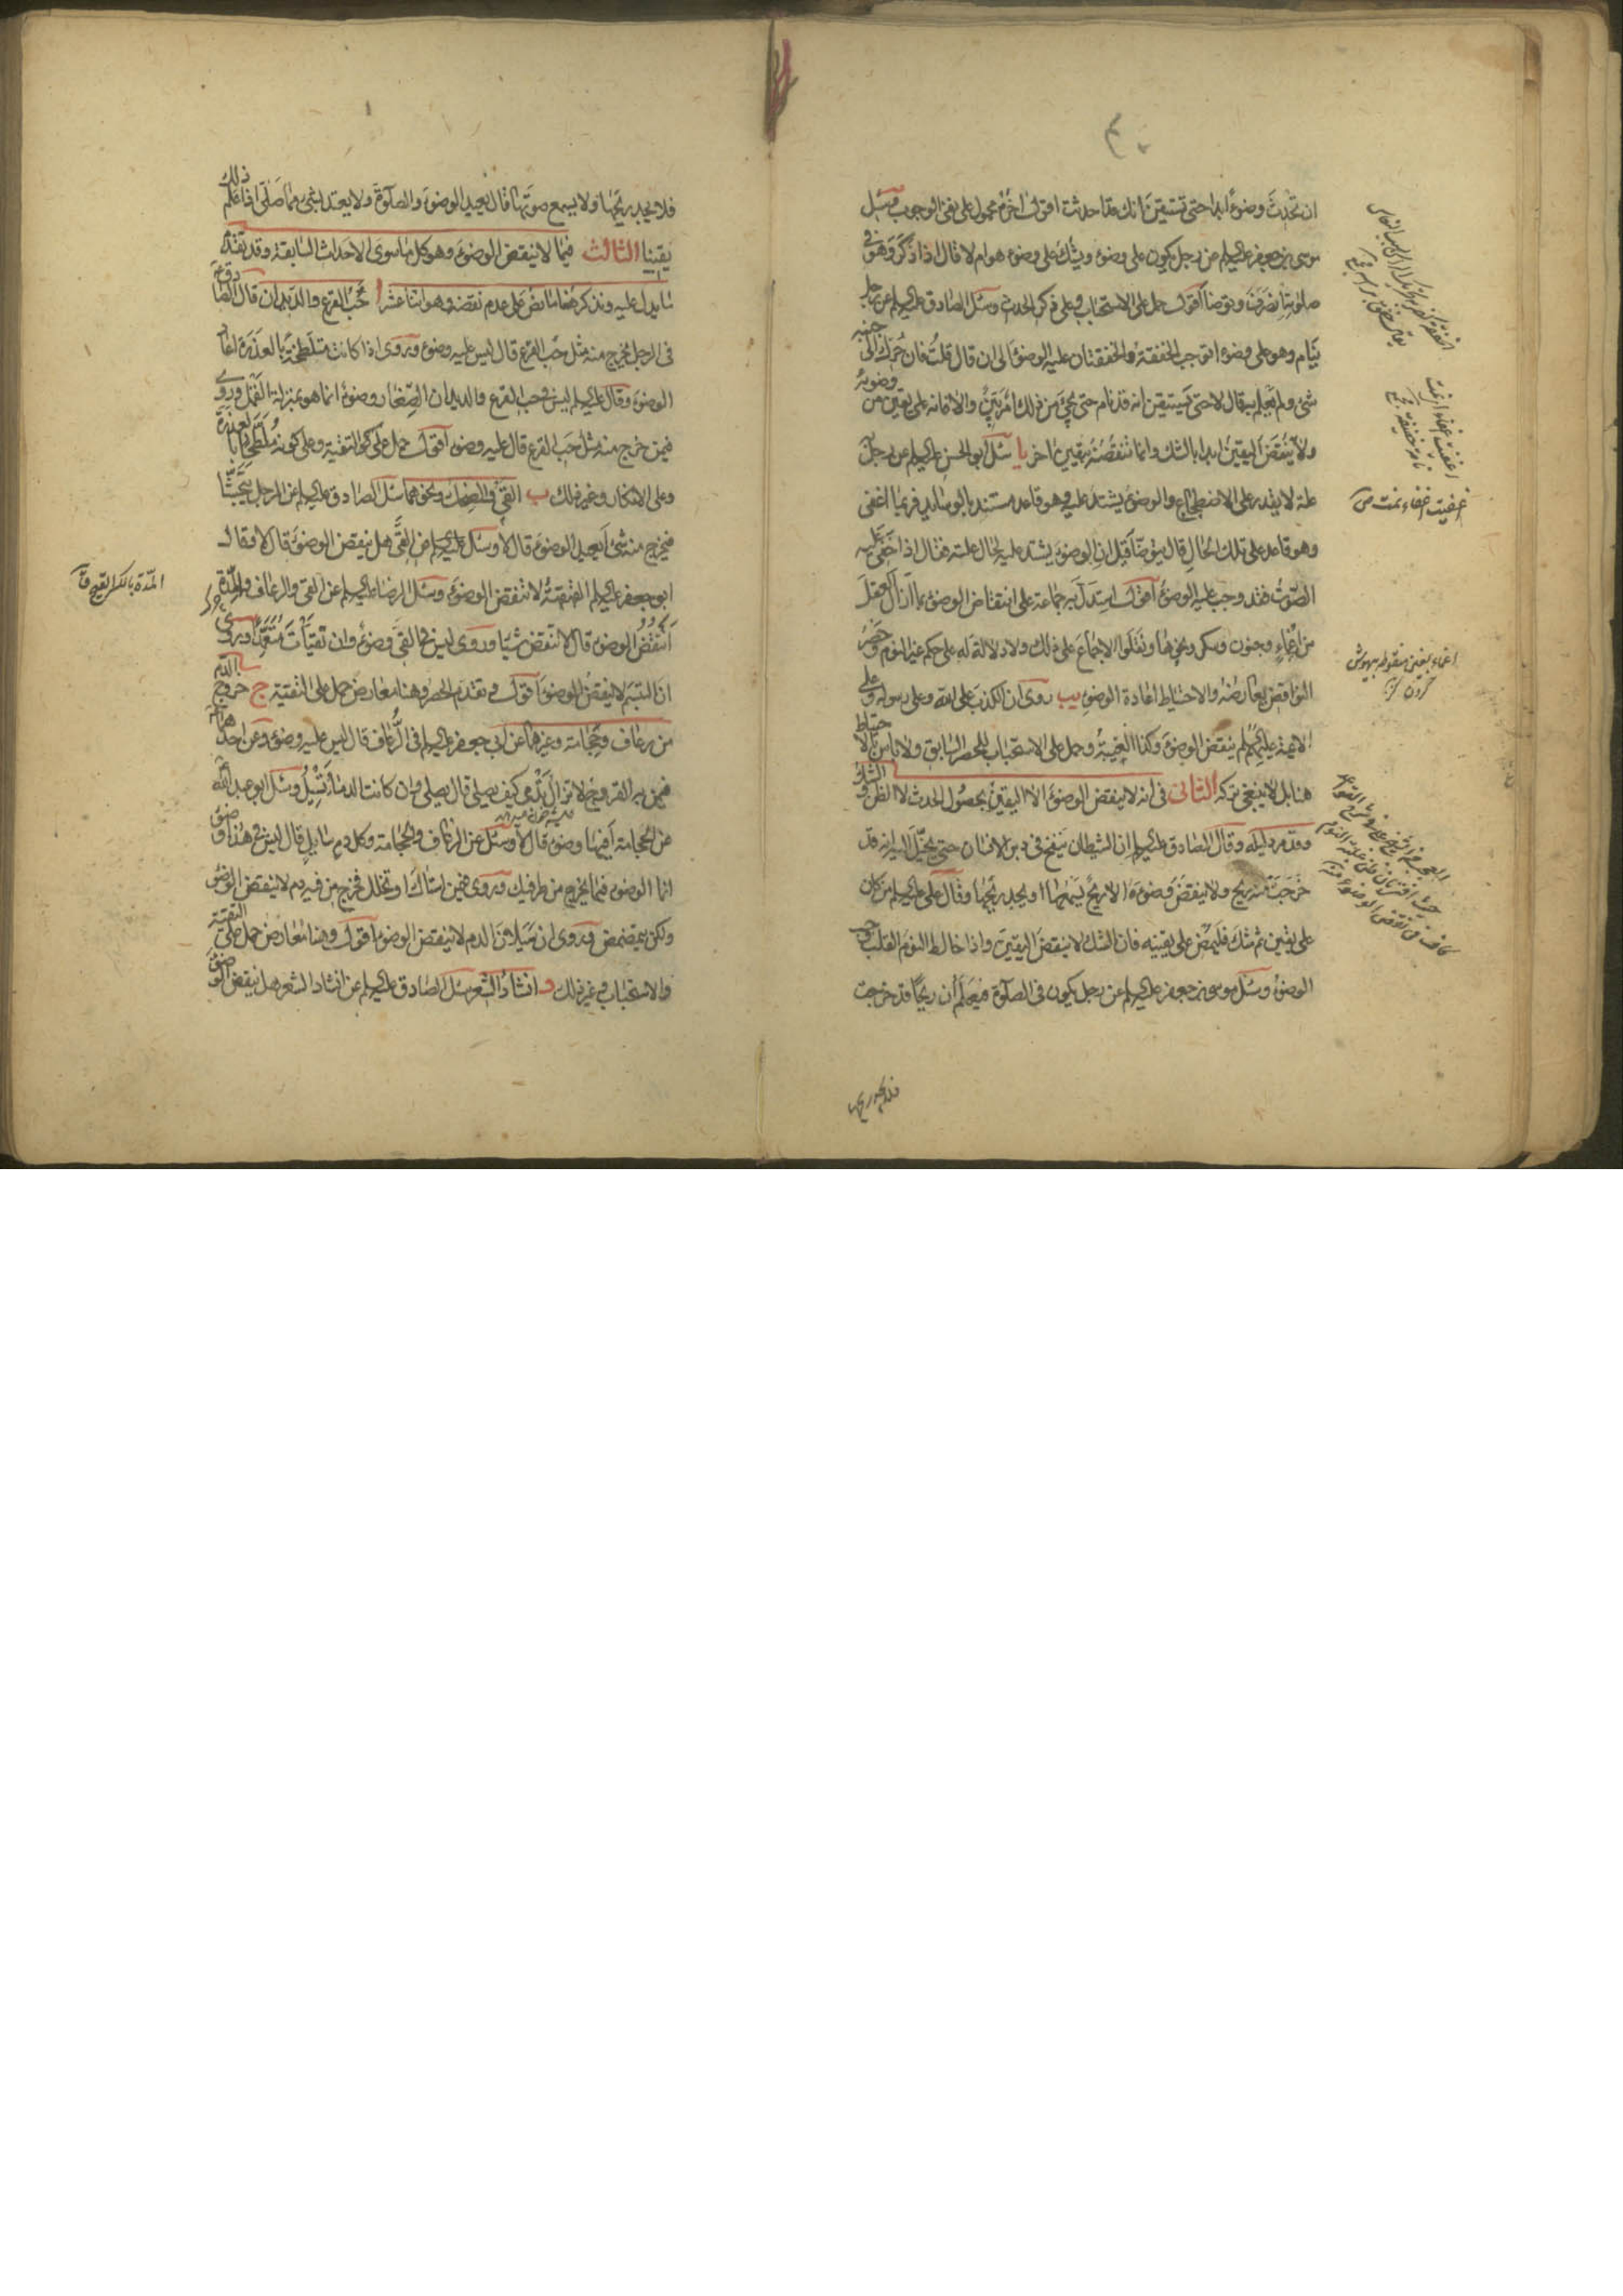 ان تحدث وضوءً ابدا حتى تستيقن انك قد احدثت اقول اخره محمول على نفى الوجوب وسئل
موسى بن جعفر عليه السلم عن رجل يكون على وضوء ويشك على وضوء هو ام لا قال اذا ذكر وهو في
صلوته انصرف وتوضأ اقول حمل على الاستحباب وعلى ذكر الحدث وسئل الصادق عليه السلم عن رجل
ينام وهو على وضوء اتوجب الخفقة والخفقتان عليه الوضوء الى ان قال قلت فان حرك الى جنبه
شئ ولم يعلم به قال لا حتى يستيقن انه قد نام حتى يجئ من ذلك امر بيّن والا فانه على يقين من وضوئه
ولا ينقض اليقين ابدا بالشك وانما تنقضه بيقين اخر يا سئل ابو الحسن عليه السلم عن رجل به
علة لا يقدر على الاضطجاع والوضوء يشتد عليه وهو قاعد مستند بالوسائد فربما اغفى
وهو قاعد على تلك الحال قال يتوضأ قيل ان الوضوء يشتد عليه لحال علته فقال اذا خفى عليه
الصوت فقد وجب عليه الوضوء اقول استدل به جماعة على انتقاض الوضوء بما ازال العقل
من اغماء وجنون وسكر ونحوها ونقلوا الاجماع على ذلك ولا دلالة له على حكم غير النوم وحصر
النواقض يعارضه والاحتياط اعادة الوضوء يب روى ان الكذب على الله وعلى رسوله وعلى
الائمة عليهم السلم ينقض الوضوء وكذا الغيبة وحمل على الاستحباب للحصر السابق ولا باس بالاحتياط
هنا بل لا ينبغي تركه الثانى فى انه لا ينقض الوضوء الا اليقين بحصول الحدث لا الظن والشك
وقد مر دليله وقال الصادق عليه السلم ان الشيطان ينفخ فى دبر الانسان حتى يخيل اليه انه قد
خرجت منه ريح ولا ينقض وضوءه الا ريح يسمعها او يجد ريحها وقال على عليه السلم من كان
على يقين ثم شك فليمض على يقينه فان الشك لا ينقض اليقين واذا خالط النوم القلب وجب
الوضوء وسئل موسى بن جعفر عليه السلم عن رجل يكون فى الصلوة فيعلم ان ريحا قد خرجت
اغفيت اغفاء نمت ص
اغماء يعنى بيهوش
كردن
فلا يجد ريحها
فلا يجد ريحها ولا يسمع صوتها قال يعيد الوضوء والصلوة ولا يعتد بشئ مما صلى اذا علم ذلك
يقينا الثالث فيما لا ينقض الوضوء وهو كل ما سوى الاحداث السابقة وقد تقدم
ما يدل عليه ونذكر هنا ما نص على عدم نقضه وهو اثنا عشر ا حب القرع والديدان قال الصادق ع
فى الرجل يخرج منه مثل حب القرع قال ليس عليه وضوء وروى اذا كانت متلطخة بالعذرة اعاد
الوضوء وقال عليه السلم ليس فى حب القرع والديدان الصغار وضوء انما هو بمنزلة القمل وروى
فيمن خرج منه مثل حب القرع قال عليه وضوء اقول حمل على التقية وعلى كونه متلطخا بالعذرة
وعلى الانكار وغير ذلك ب القئ والضحك ونحوهما سئل الصادق عليه السلم عن الرجل يتجشأ
فيخرج منه شئ ايعيد الوضوء قال لا وسئل عليه السلم عن القئ هل ينقض الوضوء قال لا وقال
ابو جعفر عليه السلم القهقهة لا تنقض الوضوء وسئل الرضا عليه السلم عن القئ والرعاف والمدة
اتنقض الوضوء قال لا تنقض شيئا وروى ليس فى القئ وضوء وان تقيأت متعمدا وروى
ان التبسم لا ينقض الوضوء اقول تقدم الحصر وهنا معارض حمل على التقية ج خروج الدم
من رعاف وحجامة وغيرهما عن ابى جعفر عليه السلم فى الرعاف قال ليس عليه وضوء وعن احدهما ع
فيمن به القروح لا تزال تدمى كيف يصلى قال يصلى وان كانت الدماء تسيل وسئل ابو عبد الله ع
عن الحجامة افيها وضوء قال لا وسئل عن الرعاف والحجامة وكل دم سايل قال ليس فى هذا وضوء
انما الوضوء فيما يخرج من طرفيك وروى فيمن استاك او تخلل فخرج من فيه دم لا ينقض الوضوء
ولكن يتمضمض وروى ان سيلان الدم لا ينقض الوضوء اقول وهنا معارض حمل على التقية
والاستحباب وغير ذلك د انشاد الشعر سئل الصادق عليه السلم عن انشاد الشعر هل ينقض الوضوء
المدة بالكسر القيح ق